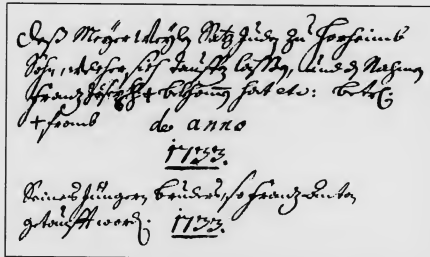 Deß Meyer Weyln Satz Juden zu Horheimb
Sohn, welcher sich tauffen lassen, und den Nahmen
Frantz Joseph + bekommen hat etc: betrl:
+ fromb de anno
1733.
Seines Jüngern bruders, so Frantz Anton
getaufft word: 1733.